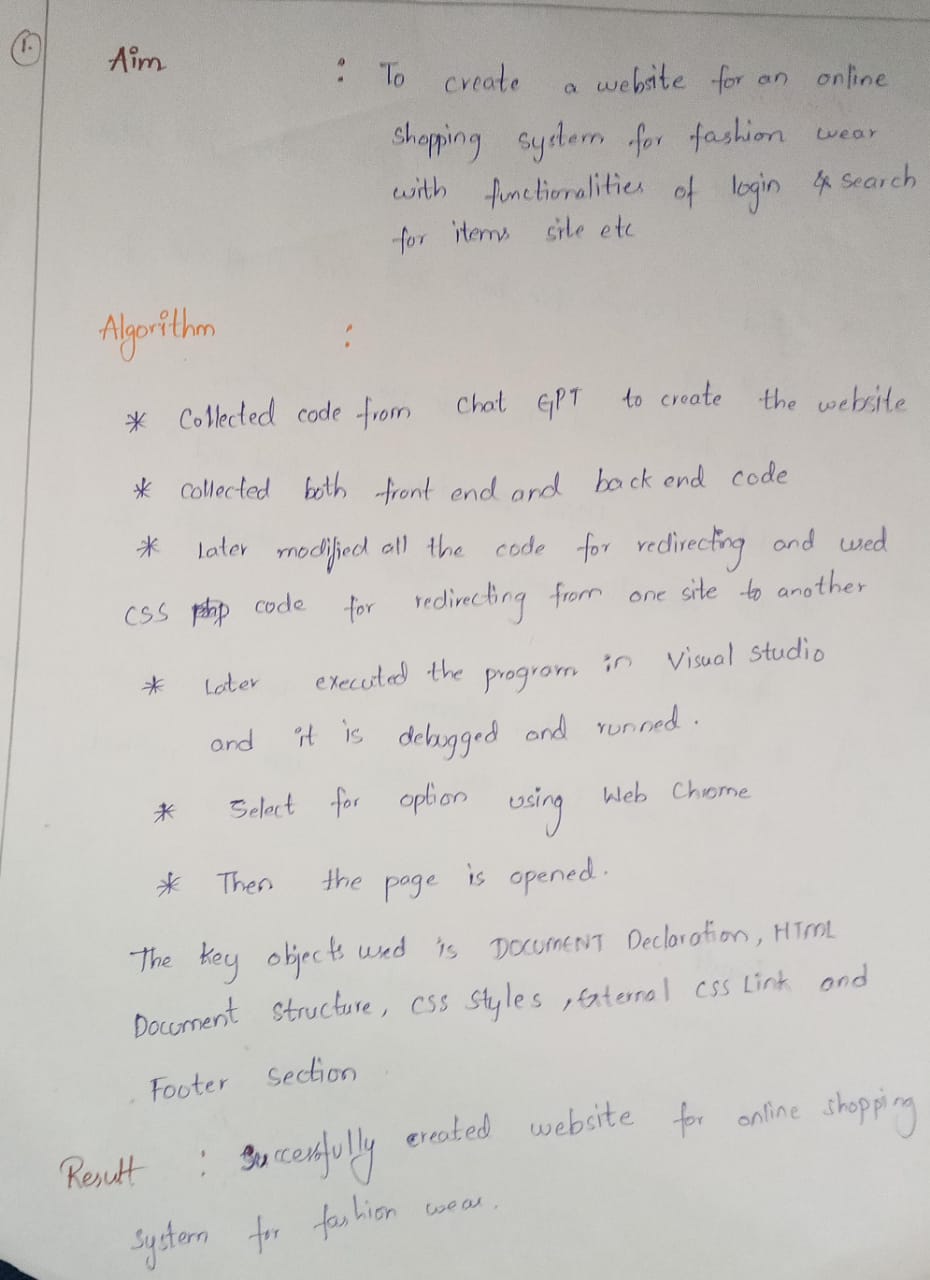 1.
Aim : To create a website for an online
shopping system for fashion wear
with functionalities of login & search
for items site etc
Algorithm :
* Collected code from Chat GPT to create the website
* collected both front end and back end code
* Later modified all the code for redirecting and used
CSS php code for redirecting from one site to another
* Later executed the program in Visual studio
and it is debugged and runned.
* Select for option using Web Chrome
* Then the page is opened.
The key objects used is DOCUMENT Declaration, HTML
Document structure, CSS Styles, External CSS Link and
Footer section
Result : Successfully created website for online shopping
system for fashion wear.